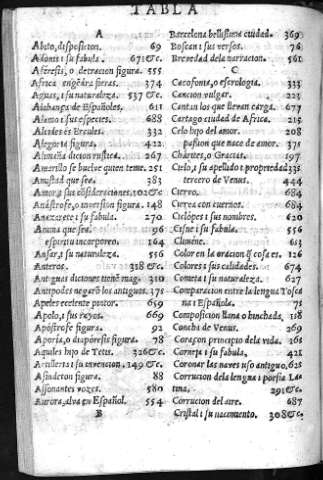 TABLA
A
Abito, disposicion. 69
Adonis i su fabula. 671 &c.
Aferesis, o detracion figura. 555
Africa engẽdra fieras. 374
Aguas, i su naturaleza. 537 &c.
Alabança de Españoles. 611
Alamo i sus especies. 688
Alcides es Ercules. 332
Alegoria figura. 422
Alemaña dicion rustica. 267
Amarillo se buelve quien teme. 251
Amistad que sea. 383
Amor, i sus consideraciones. 102 &c.
Anastrofe, o inversion figura. 148
Anaxarete i su fabula. 270
Anima que sea. 96
espiritu incorporeo. 164
Ansar, i su naturaleza. 556
Anteros. 318 &c.
Antiguas diciones tienẽ mag. 310
Antipodes negarõ los antiguos. 175
Apeles ecelente pintor. 659
Apolo, i sus reyes. 669
Apóstrofe figura. 92
Aporia, o diapóresis figura. 78
Aquiles hijo de Tetis. 326 &c.
Artilleria i su invencion. 149 &c.
Asindeton figura. 88
Assonantes vozes. 580
Aurora, alva en Español. 554
B
Barcelona bellissima ciudad. 369
Boscan i sus versos. 76
Brevedad dela narracion. 561
C
Cacofonia, o escrologia. 333
Cancion vulgar. 223
Cantan los que llevan carga. 677
Cartago ciudad de Africa. 215
Celo hijo del amor. 208
passion que nace de amor. 371
Chárites, o Gracias. 197
Cielo, i su apellido i propriedad 335
tercero de Venus. 444
Ciervo. 684
Cierva con cuernos. 684
Ciclopes i sus nombres. 620
Cisne i su fabula. 556
Climéne. 613
Color en la oracion q̃ cosa es. 126
Colores i sus calidades. 674
Cometa i su naturaleza. 627
Comparacion entre la lengua Toscana i Española. 75
Composicion llana o hinchada. 118
Concha de Venus. 269
Coraçon principio dela vida. 361
Corneja i su fabula. 421
Coronar las naves uso antiguo. 625
Corrucion dela lengua i poesia Latina. 291 &c.
Corrucion del aire. 687
Cristal i su nacimiento. 308 &c.